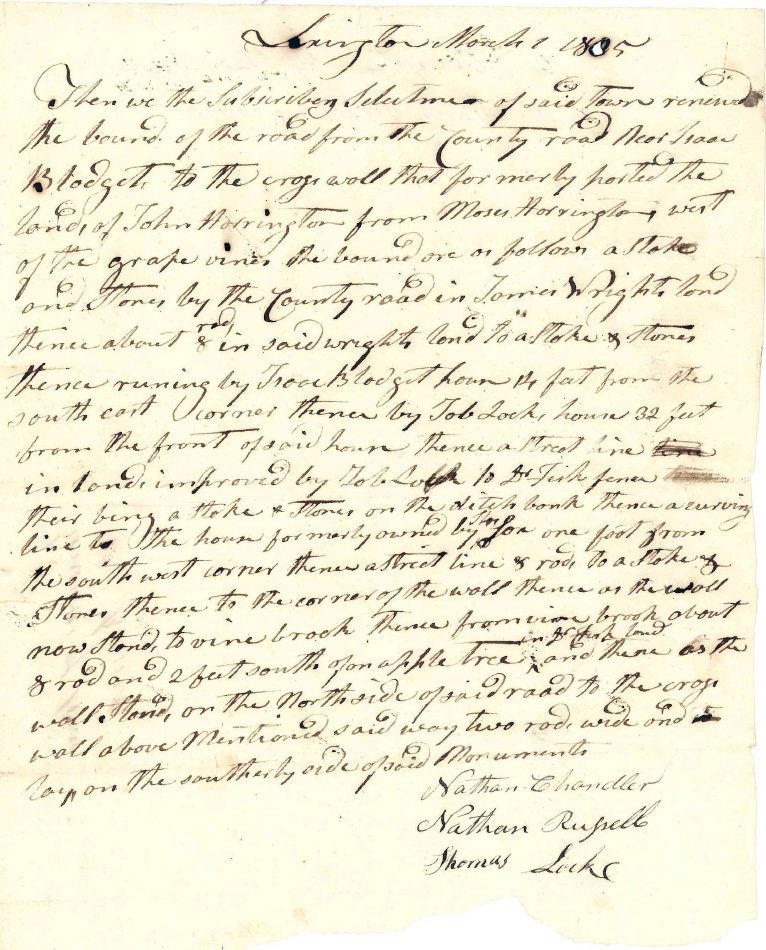 Lexington March 1 1805
Then we the Subscribers Selectmen of said Town renewed
the bounds of the road from the County road Near Isaac
Blodgets to the cross wall that formerly parted the
lands of John Harrington from Moses Harringtons west
of the grape vines the bounds are as follows a stake
and Stones by the County road in James Wrights land
thence about 8 rods in said wrights land to a stake & stones
thence runing by Isaac Blodget house 14 feet from the
south east corner thence by Job Locks house 32 feet
from the front of said house thence a streat line
in lands improved by Job Lock to Dr Fisk fence
their bing a stake & Stones on the ditch bank thence a curving
line to the house formerly owned by one foot from
the south west corner thence a streat line 8 rods to a stake &
Stones thence to the corner of the wall thence as the wall
now Stands to vine brook thence from vine brook about
8 rod and 2 feet south of an apple tree in Dr Fisk land and thence as the
wall Stands on the North side of said road to the cross
wall above Mentioned said way two rods wide and
lays on the southerly side of said Monuments
Nathan Chandler
Nathan Russell
Thomas Locke